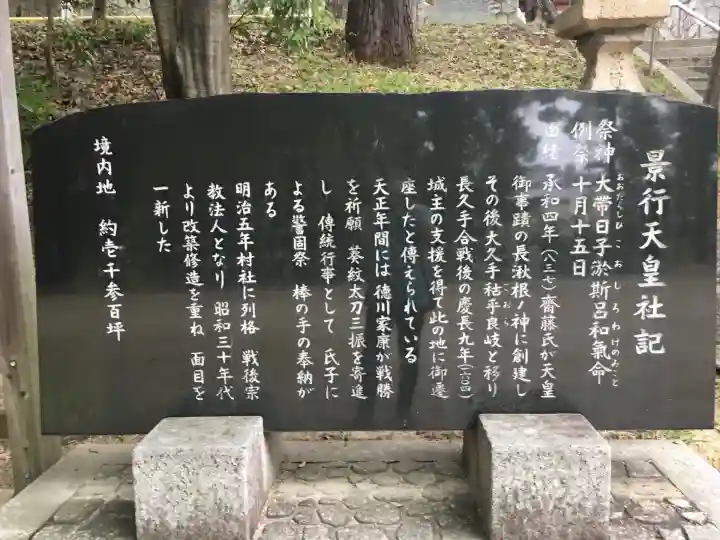 景行天皇社記
祭神 大帯日子淤斯呂和氣命
おおたらしひこおしろわけのみこと
例祭 十月十五日
由緒 承和四年(八三七)齋藤氏が天皇
御事蹟の長湫根ノ神に創建し
その後大久手祜乎良岐と移り
こおら
長久手合戦後の慶長九年(一六〇四)
城主の支援を得て此の地に御遷
座したと傳えられている
天正年間には 徳川家康が戦勝
を祈願 葵紋太刀三振を寄進
し 傳統行事として 氏子に
よる警固祭 棒の手の奉納が
ある
明治五年村社に列格 戦後宗
教法人となり 昭和三十年代
より改築修造を重ね 面目を
一新した
境内地 約壱千参百坪